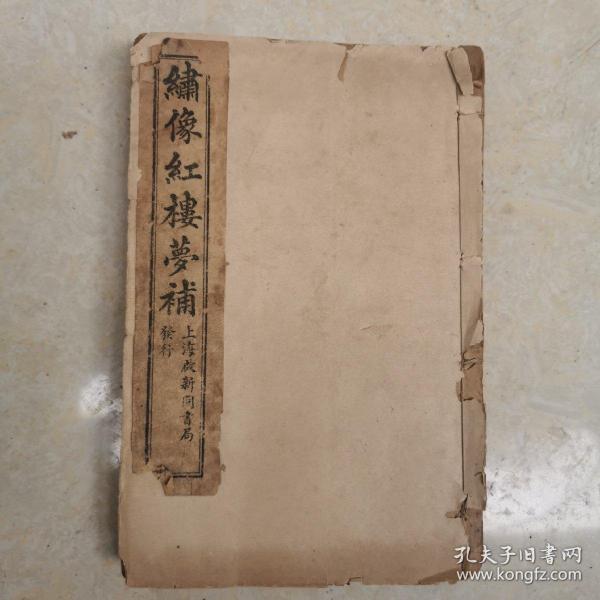 繡像紅樓夢補
上海啟新同書局
發行
孔夫子旧书网
www.kongfz.com